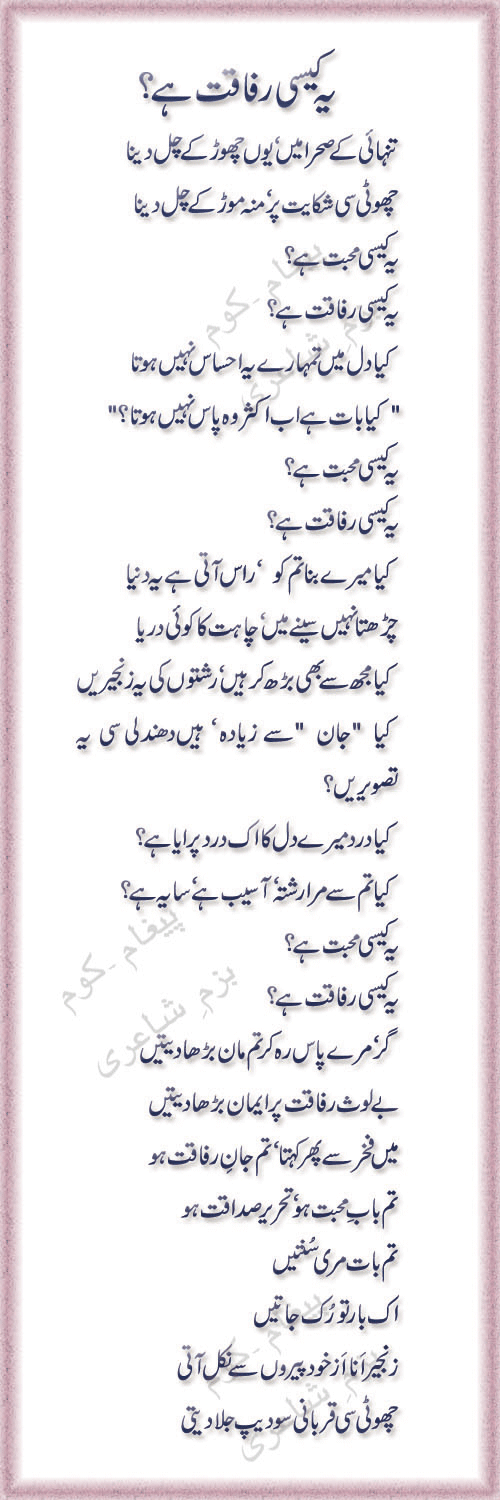 یہ کیسی رفاقت ہے؟
تنہائی کے صحرا میں‘ یوں چھوڑ کے چل دینا
چھوٹی سی شکایت پر‘ منہ موڑ کے چل دینا
یہ کیسی محبت ہے؟
یہ کیسی رفاقت ہے؟
کیا دل میں تمہارے یہ احساس نہیں ہوتا
" کیا بات ہے اب اکثر وہ پاس نہیں ہوتا؟"
یہ کیسی محبت ہے؟
یہ کیسی رفاقت ہے؟
کیا میرے بنا تم کو ‘ راس آتی ہے یہ دنیا
چڑھتا نہیں سینے میں‘ چاہت کا کوئی دریا
کیا مجھ سے بھی بڑھ کر ہیں‘ رشتوں کی یہ زنجیریں
کیا "جان "سے زیادہ‘ ہیں دھندلی سی یہ
تصویریں؟
کیا درد میرے دل کا اک درد پرایا ہے؟
کیا تم سے مرا رشتہ‘ آسیب ہے‘ سایہ ہے؟
یہ کیسی محبت ہے؟
یہ کیسی رفاقت ہے؟
گر‘ مرے پاس رہ کر تم مان بڑھا دیتیں
بے لوث رفاقت پر ایمان بڑھا دیتیں
میں فخر سے پھر کہتا‘ تم جانِ رفاقت ہو
تم بابِ محبت ہو‘ تحریرِ صداقت ہو
تم بات مری سُنتیں
اک بار تو رُک جاتیں
زنجیرِ اَنا اَز خود پیروں سے نکل آتی
چھوٹی سی قربانی سو دیپ جلا دیتی
پیغام ۔ کوم
بزمِ شاعری
پیغام ۔ کوم
بزمِ شاعری
پیغام ۔ کوم
بزمِ شاعری